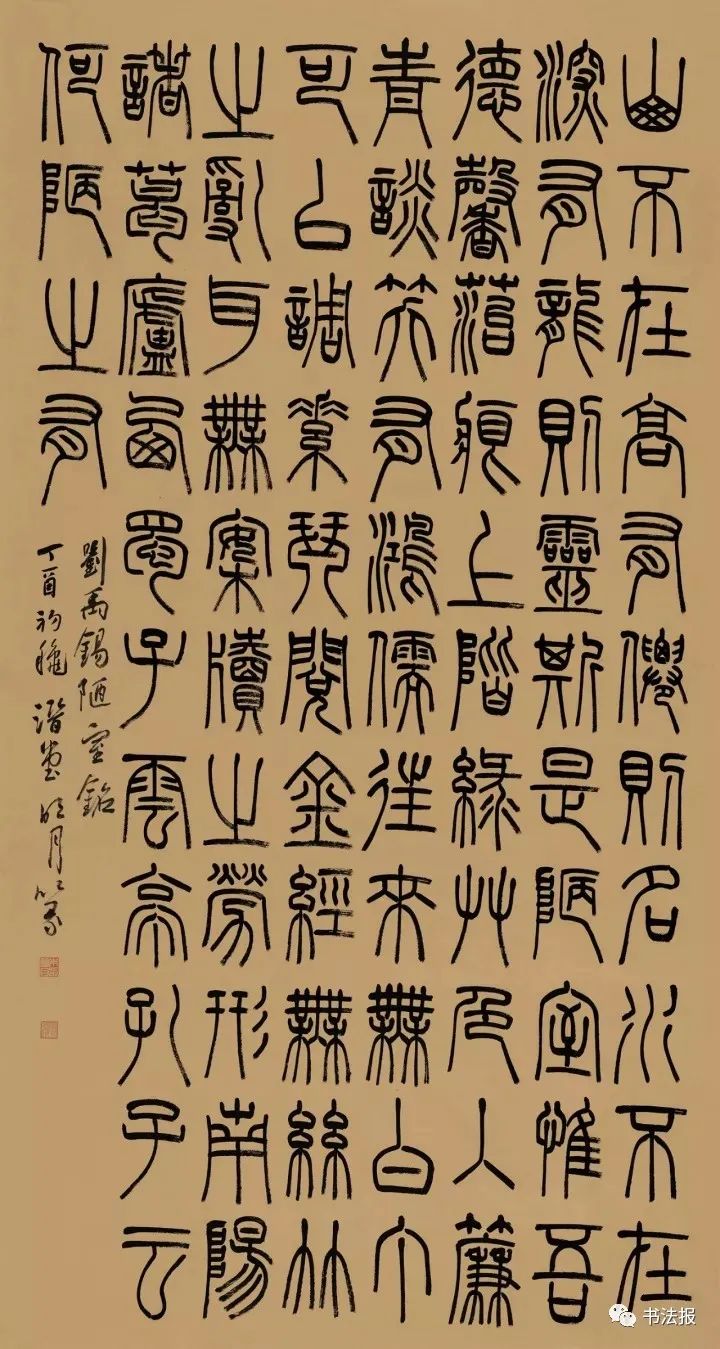 山不在高有僊則名水不在
深有龍則靈斯是陋室惟吾
德馨菭痕上階綠艸色入簾
青談笑有鴻儒往來無白丁
可以調素琴閱金經無絲竹
之亂耳無案牘之勞形南陽
諸葛廬西蜀子雲亭孔子云
何陋之有
劉禹錫陋室銘
丁酉初穐潛堂明月篆
书法报